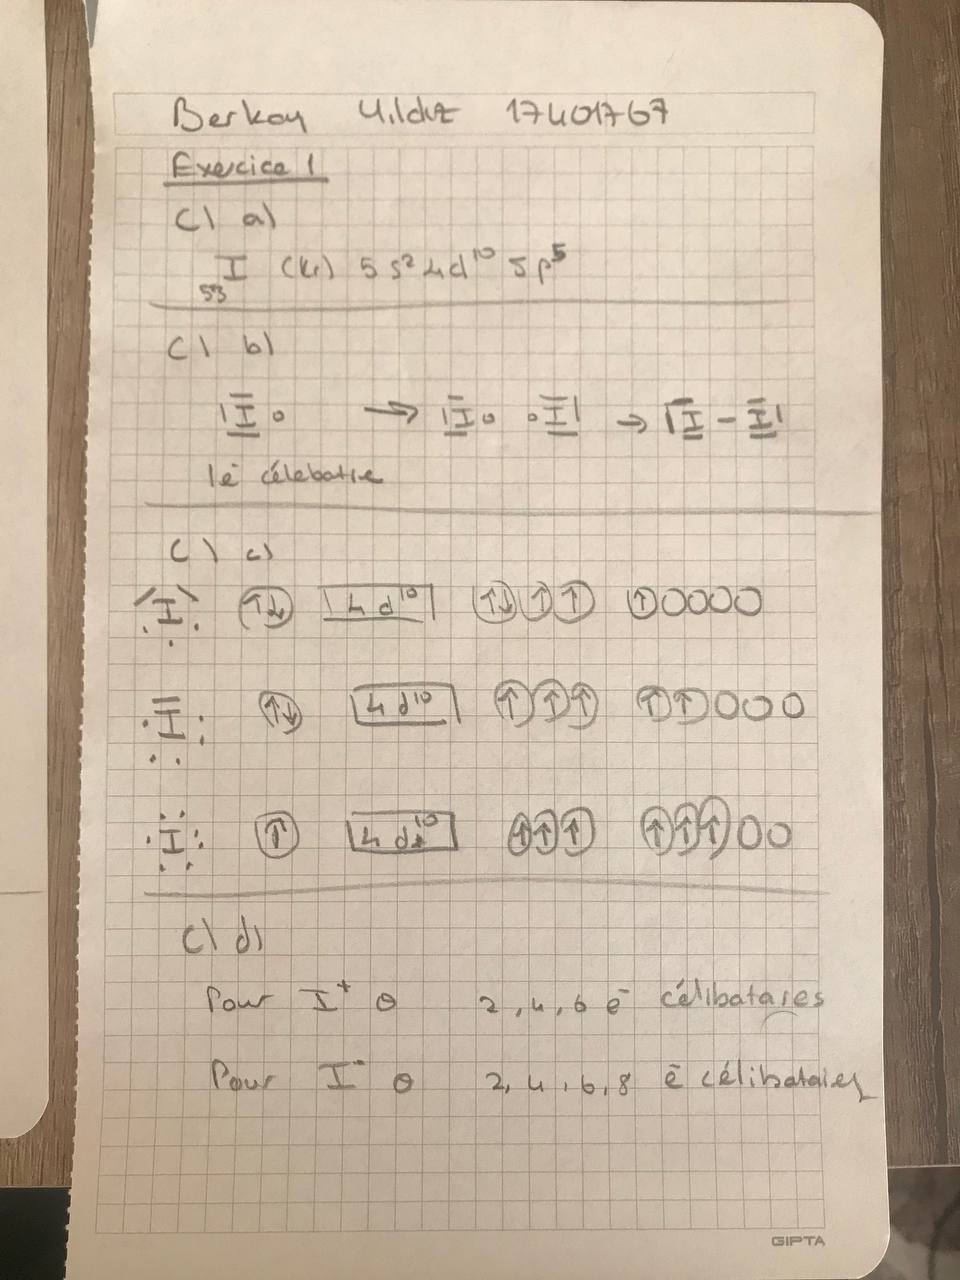 Berkay Yıldız 17401767
Exercice 1
C) a)
₅₃I (Kr) 5s² 4d¹⁰ 5p⁵
C) b)
|I o → |I o o I| → |I - I|
1é célebatre
C) c)
I ↑↓ 4d¹⁰ ↑↓ ↑ ↑ ↑ O O O O
I ↑↓ 4d¹⁰ ↑ ↑ ↑ ↑ ↑ O O O
I ↑ 4d¹⁰ ↑ ↑ ↑ ↑ ↑ ↑ O O
C) d)
Pour I⁺ 0 2, 4, 6 é célibataires
Pour I⁻ 0 2, 4, 6, 8 é célibataires
GIPTA